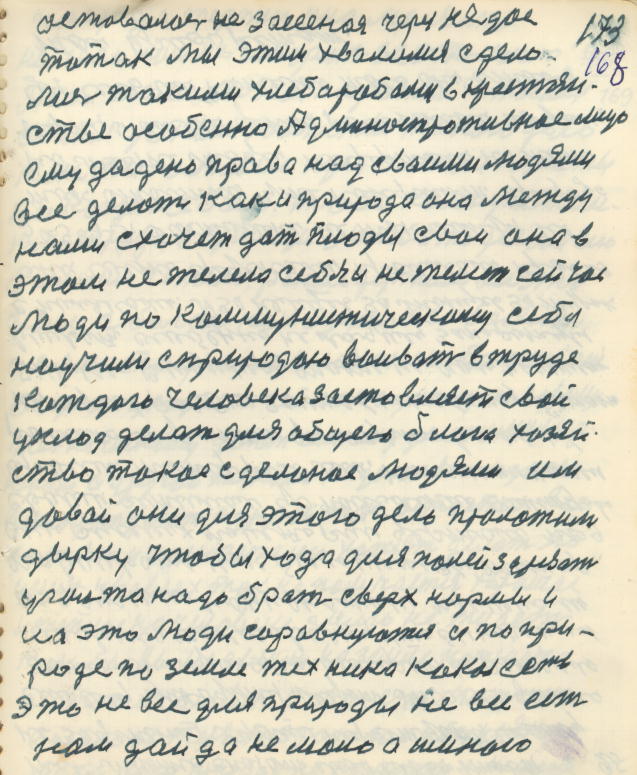 173
168
остовалося не засееноя через недое
то так мы этим хвалимся сдело-
лися такими хлебаробами в крестьян-
стве особенно Административное лицо
ему дадено права над своими людями
все делоть как и природа она между
нами схочет дать плоды свои она в
этом не жолела себя и не жолет сейчас
люди по коммунистическому себя
научили с природою воивать в труде
каждого человека заставляет свой
уклод делать для общего блога хозяй-
ство такое сделоное людями им
довай они для этого дело проложим
дырку чтобы хода для полей
уголь то надо брать сверх нормы и
на это люди соравнуются и по при-
роде по земле техника кокая есть
это не все для природы не все есть
нам дай да не мало а много